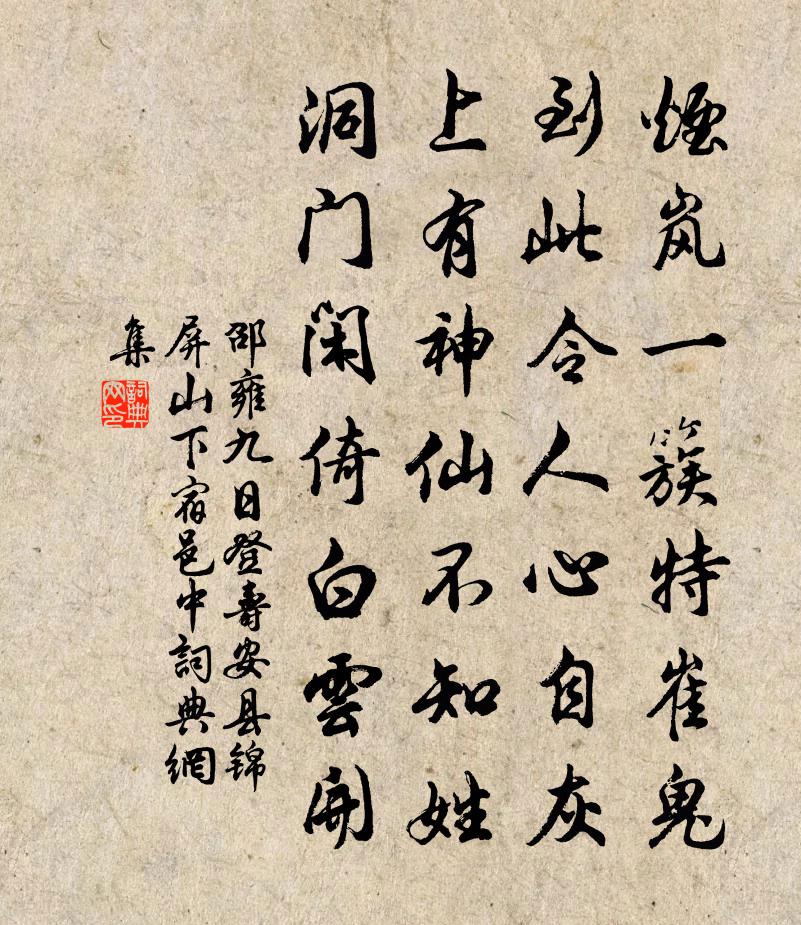 煙岚一簇特崔鬼
到此令人心自灰
上有神仙不知姓
洞门闲倚白雲開
邵雍九日登壽安县锦
屏山下宿邑中詞典網
集
詞典网印